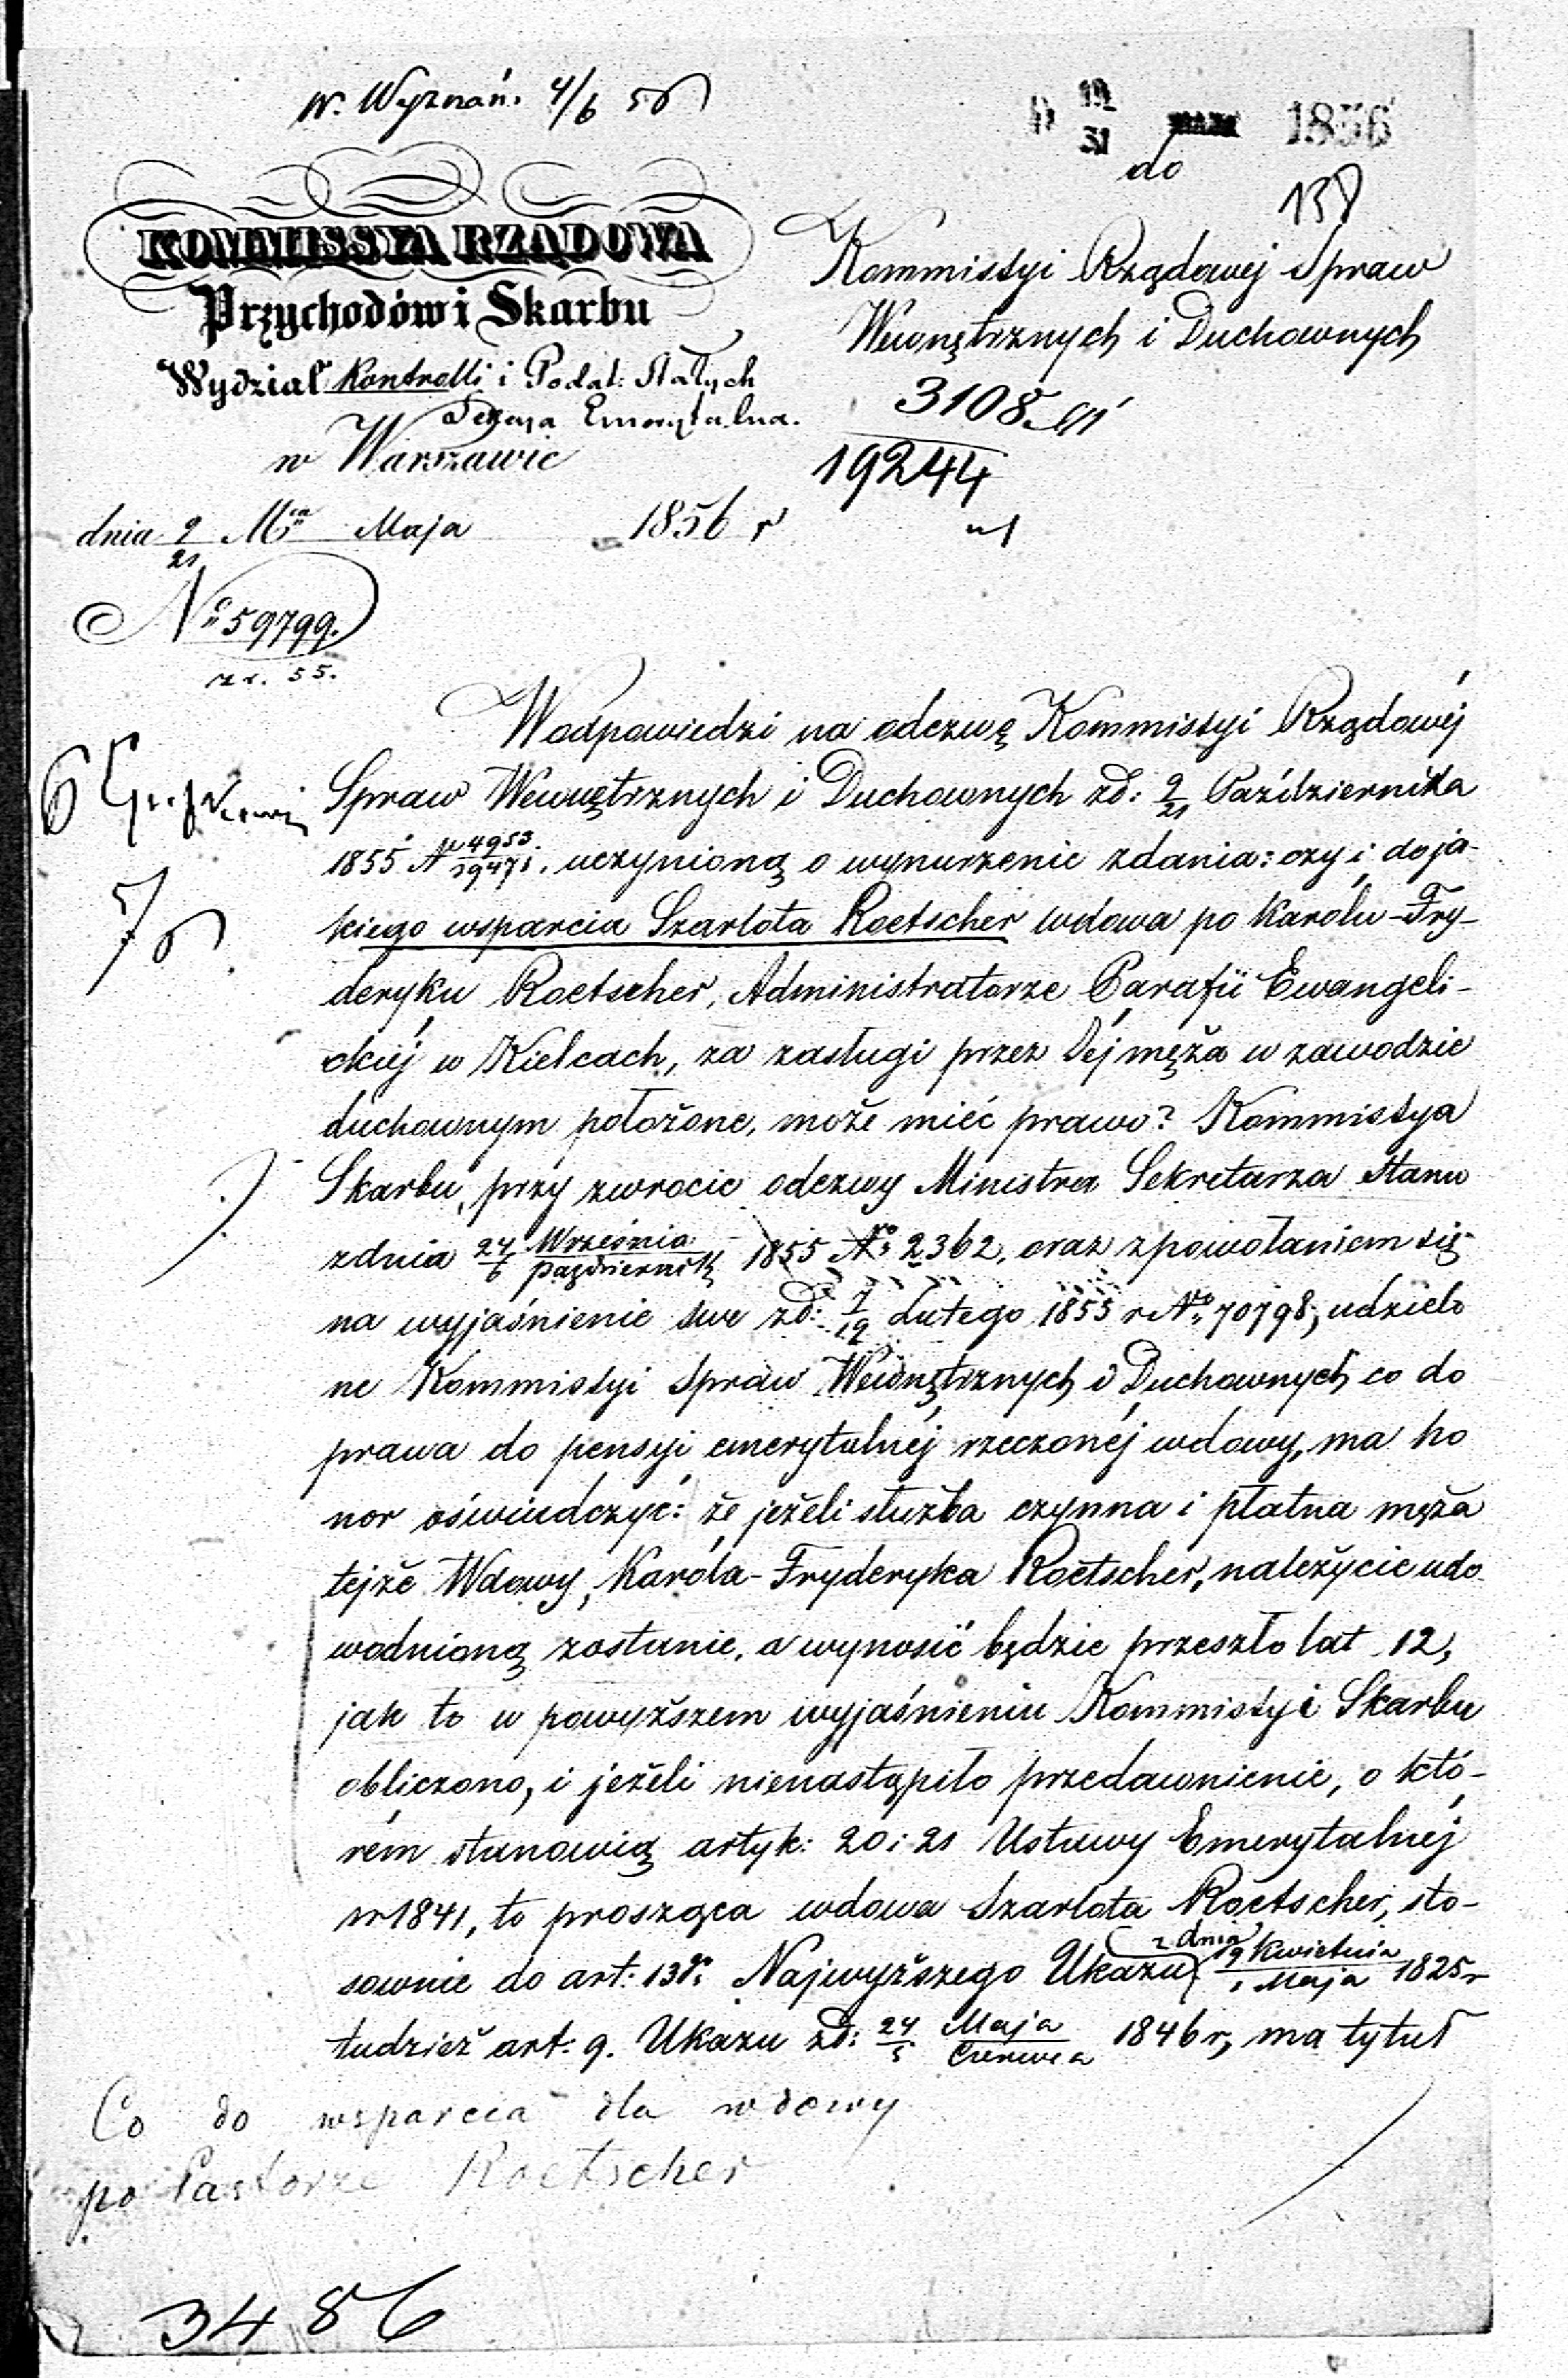 W. Wyznań. 4/6 56
19/31 MAJA 1856
do
138
KOMMISSYA RZĄDOWA
Przychodów i Skarbu
Wydział Kontrolli i Podat: Stałych
Sekcya Emerytalna.
w Warszawie
dnia 9/21 Mca Maja 1856 r
No 59799.
z r. 55.
Kommissyi Rządowej Spraw
Wewnętrznych i Duchownych
3108
19244
W odpowiedzi na odezwę Kommissyi Rządowéj
Spraw Wewnętrznych i Duchownych zd: 9/21 Października
1855 N 4953/19471, uczynioną o wynurzenie zdania: czy i do ja-
kiego wsparcia Szarlota Roetscher wdowa po Karolu-Fry-
deryku Roetscher, Administratorze Parafii Ewangeli-
ckiéj w Kielcach, za zasługi przez Jéj męża w zawodzie
duchownym położone, może mieć prawo? Kommissya
Skarbu, przy zwrocie odezwy Ministra Sekretarza Stanu
z dnia 24 Września/6 Październik 1855 No 2362, oraz z powołaniem się
na wyjaśnienie swe zd: 7/19 Lutego 1855 r No 70798, udzielo
ne Kommissyi Spraw Wewnętrznych i Duchownych co do
prawa do pensyi emerytalnéj rzeczonéj wdowy, ma ho
nor oświadczyć: że jeżeli służba czynna i płatna męża
tejże Wdowy, Karóla-Fryderyka Roetscher, należycie udo
wodnioną zostanie, a wynosić będzie przeszło lat 12,
jak to w powyższem wyjaśnieniu Kommissyi Skarbu
obliczono, i jeżeli nienastąpiło przedawnienie, o któ-
rém stanowią artyk: 20 i 21 Ustawy Emerytalnéj
z r 1841, to prosząca wdowa Szarlota Roetscher, sto-
sownie do art: 138 Najwyższego Ukazu z dnia 19 Kwietnia/1 Maja 1825 r
tudzież art: 9. Ukazu zd: 24 Maja/5 Czerwca 1846 r, ma tytuł
Co do wsparcia dla wdowy
po Pastorze Roetscher
3486